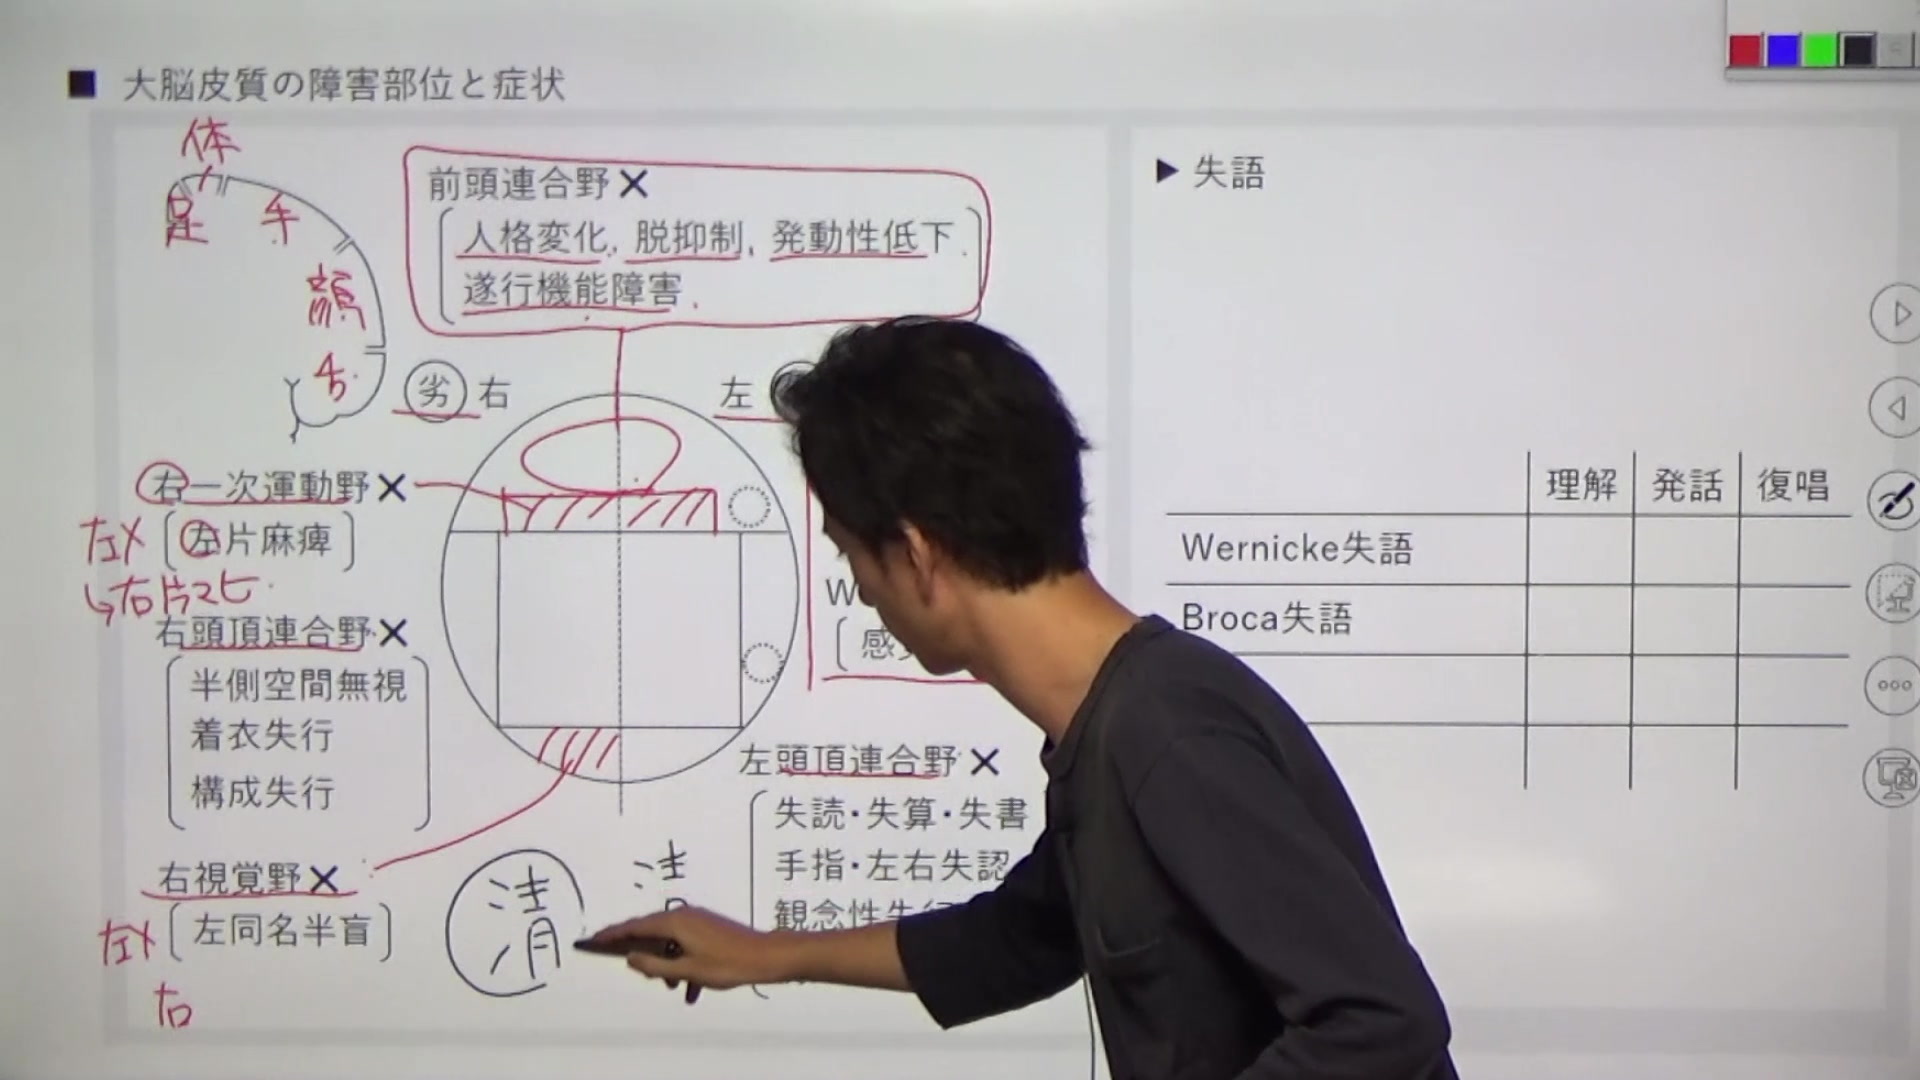 大脳皮質の障害部位と症状
体
足 手
顔
舌
前頭連合野×
人格変化, 脱抑制, 発動性低下
遂行機能障害
劣 右
左
右一次運動野×
左× [左片麻痺]
↳右片マヒ
右頭頂連合野×
半側空間無視
着衣失行
構成失行
右視覚野×
左× [左同名半盲]
右
清
W
感
左頭頂連合野×
失読・失算・失書
手指・左右失認
観念性失行
▶ 失語
理解 発話 復唱
Wernicke失語
Broca失語